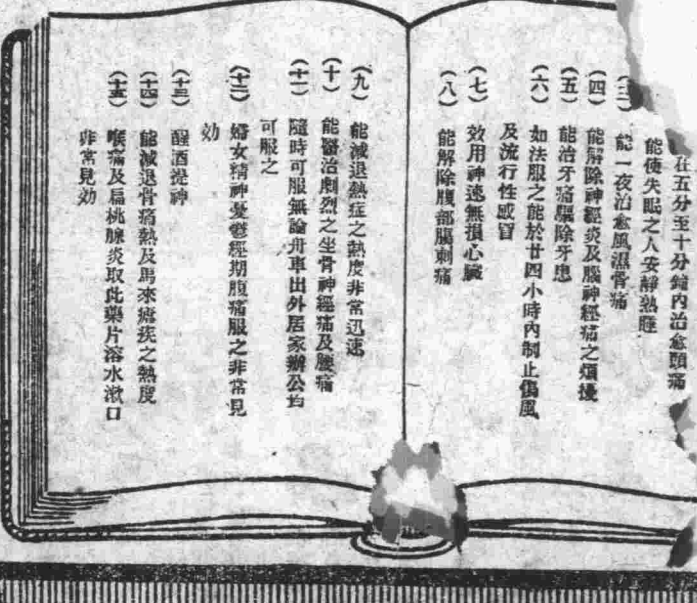 在五分至十分鐘內治愈頭痛
能使失眠之人安靜熟睡
(三) 能一夜治愈風濕骨痛
(四) 能解除神經炎及腦神經痛之煩擾
(五) 能治牙痛驅除牙患
(六) 如法服之能於廿四小時內制止傷風
及流行性感冒
(七) 效用神速無損心臟
(八) 能解除腹部腸刺痛
(九) 能減退熱症之熱度非常迅速
(十) 能醫治劇烈之坐骨神經痛及腰痛
(十一) 隨時可服無論舟車出外居家辦公均
可服之
(十二) 婦女精神憂鬱經期腹痛服之非常見
効
(十三) 醒酒提神
(十四) 能減退骨痛熱及馬來瘧疾之熱度
(十五) 喉痛及扁桃腺炎取此藥片溶水漱口
非常見効